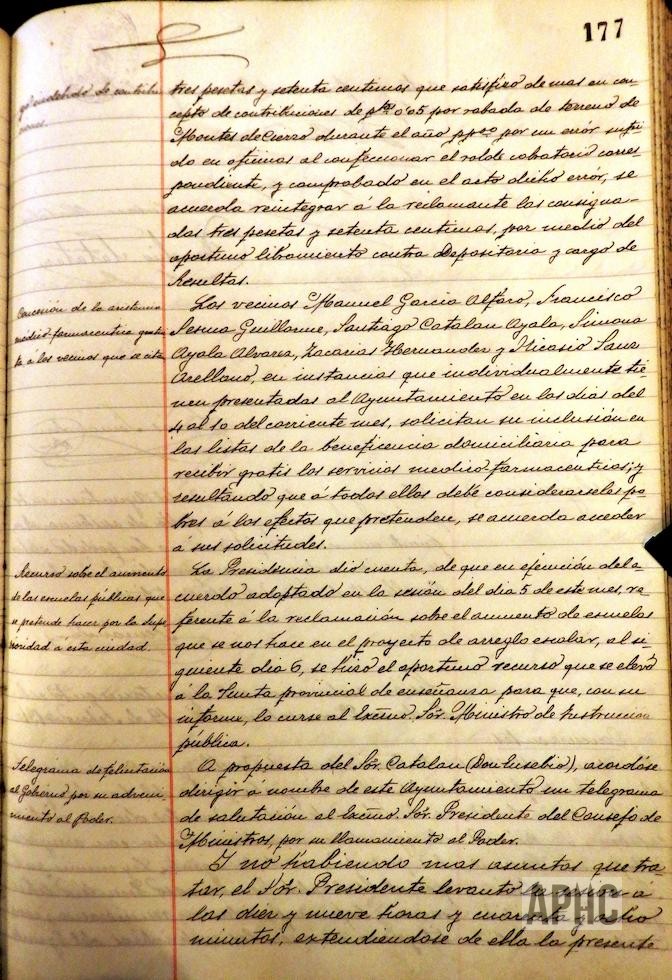 177
indebido de contribu
ciones.
tres pesetas y setenta centimos que satisfizo de mas en con-
cepto de contribuciones de ptas 0'05 por robada de terreno de
Montes de Cierzo durante el año ppdo por un error sufri-
do en oficinas al confeccionar el rolde cobratorio corres-
pondiente, y comprobado en el acto dicho error, se
acuerda reintegrar á la reclamante las consigna-
das tres pesetas y setenta centimas, por medio del
oportuno libramiento contra Depositaria y cargo de
Resultas.
Concesión de la asistencia
médico-farmaceutica gratui
ta á los vecinos que se cita
Los vecinos Manuel Garcia Alfaro, Francisco
Sesma Guillorme, Santiago Catalan Ayala, Simona
Ayala Alvarez, Zacarias Hernandez y Nicasio Sanz
Arellano, en instancias que individualmente tie-
nen presentadas al Ayuntamiento en los dias del
4 al 10 del corriente mes, solicitan su inclusión en
las listas de la beneficencia domiciliaria para
recibir gratis los servicios medico-farmaceuticos; y
resultando que á todos ellos debe considerarseles po-
bres á los efectos que pretenden, se acuerda acceder
á sus solicitudes.
Recurso sobre el aumento
de las escuelas públicas que
se pretende hacer por la Supe
rioridad á esta ciudad.
La Presidencia dio cuenta, de que en ejecución del a
cuerdo adoptado en la sesión del dia 5 de este mes, re-
ferente á la reclamasión sobre el aumento de escuelas
que se nos hace en el proyecto de arreglo escolar, al si-
guiente dia 6, se hizo el oportuno recurso que se elevó
á la Junta provincial de enseñanza para que, con su
informe, lo curse al Excmo. Sór. Ministro de Instruccion
pública.
Telegrama de felicitación
al Gobierno por su adveni
miento al Poder.
A propuesta del Sór. Catalan (Don Eusebio), acordóse
dirigir á nombre de este Ayuntamiento un telegrama
de salutación al Excmo. Sór. Presidente del Consejo de
Ministros, por su llamamiento al Poder.
Y no habiendo mas asuntos que tra-
tar, el Sór. Presidente levantó la sesion á
las diez y nueve horas y cuarenta y ocho
minutos, extendiendose de ella la presente
APHC